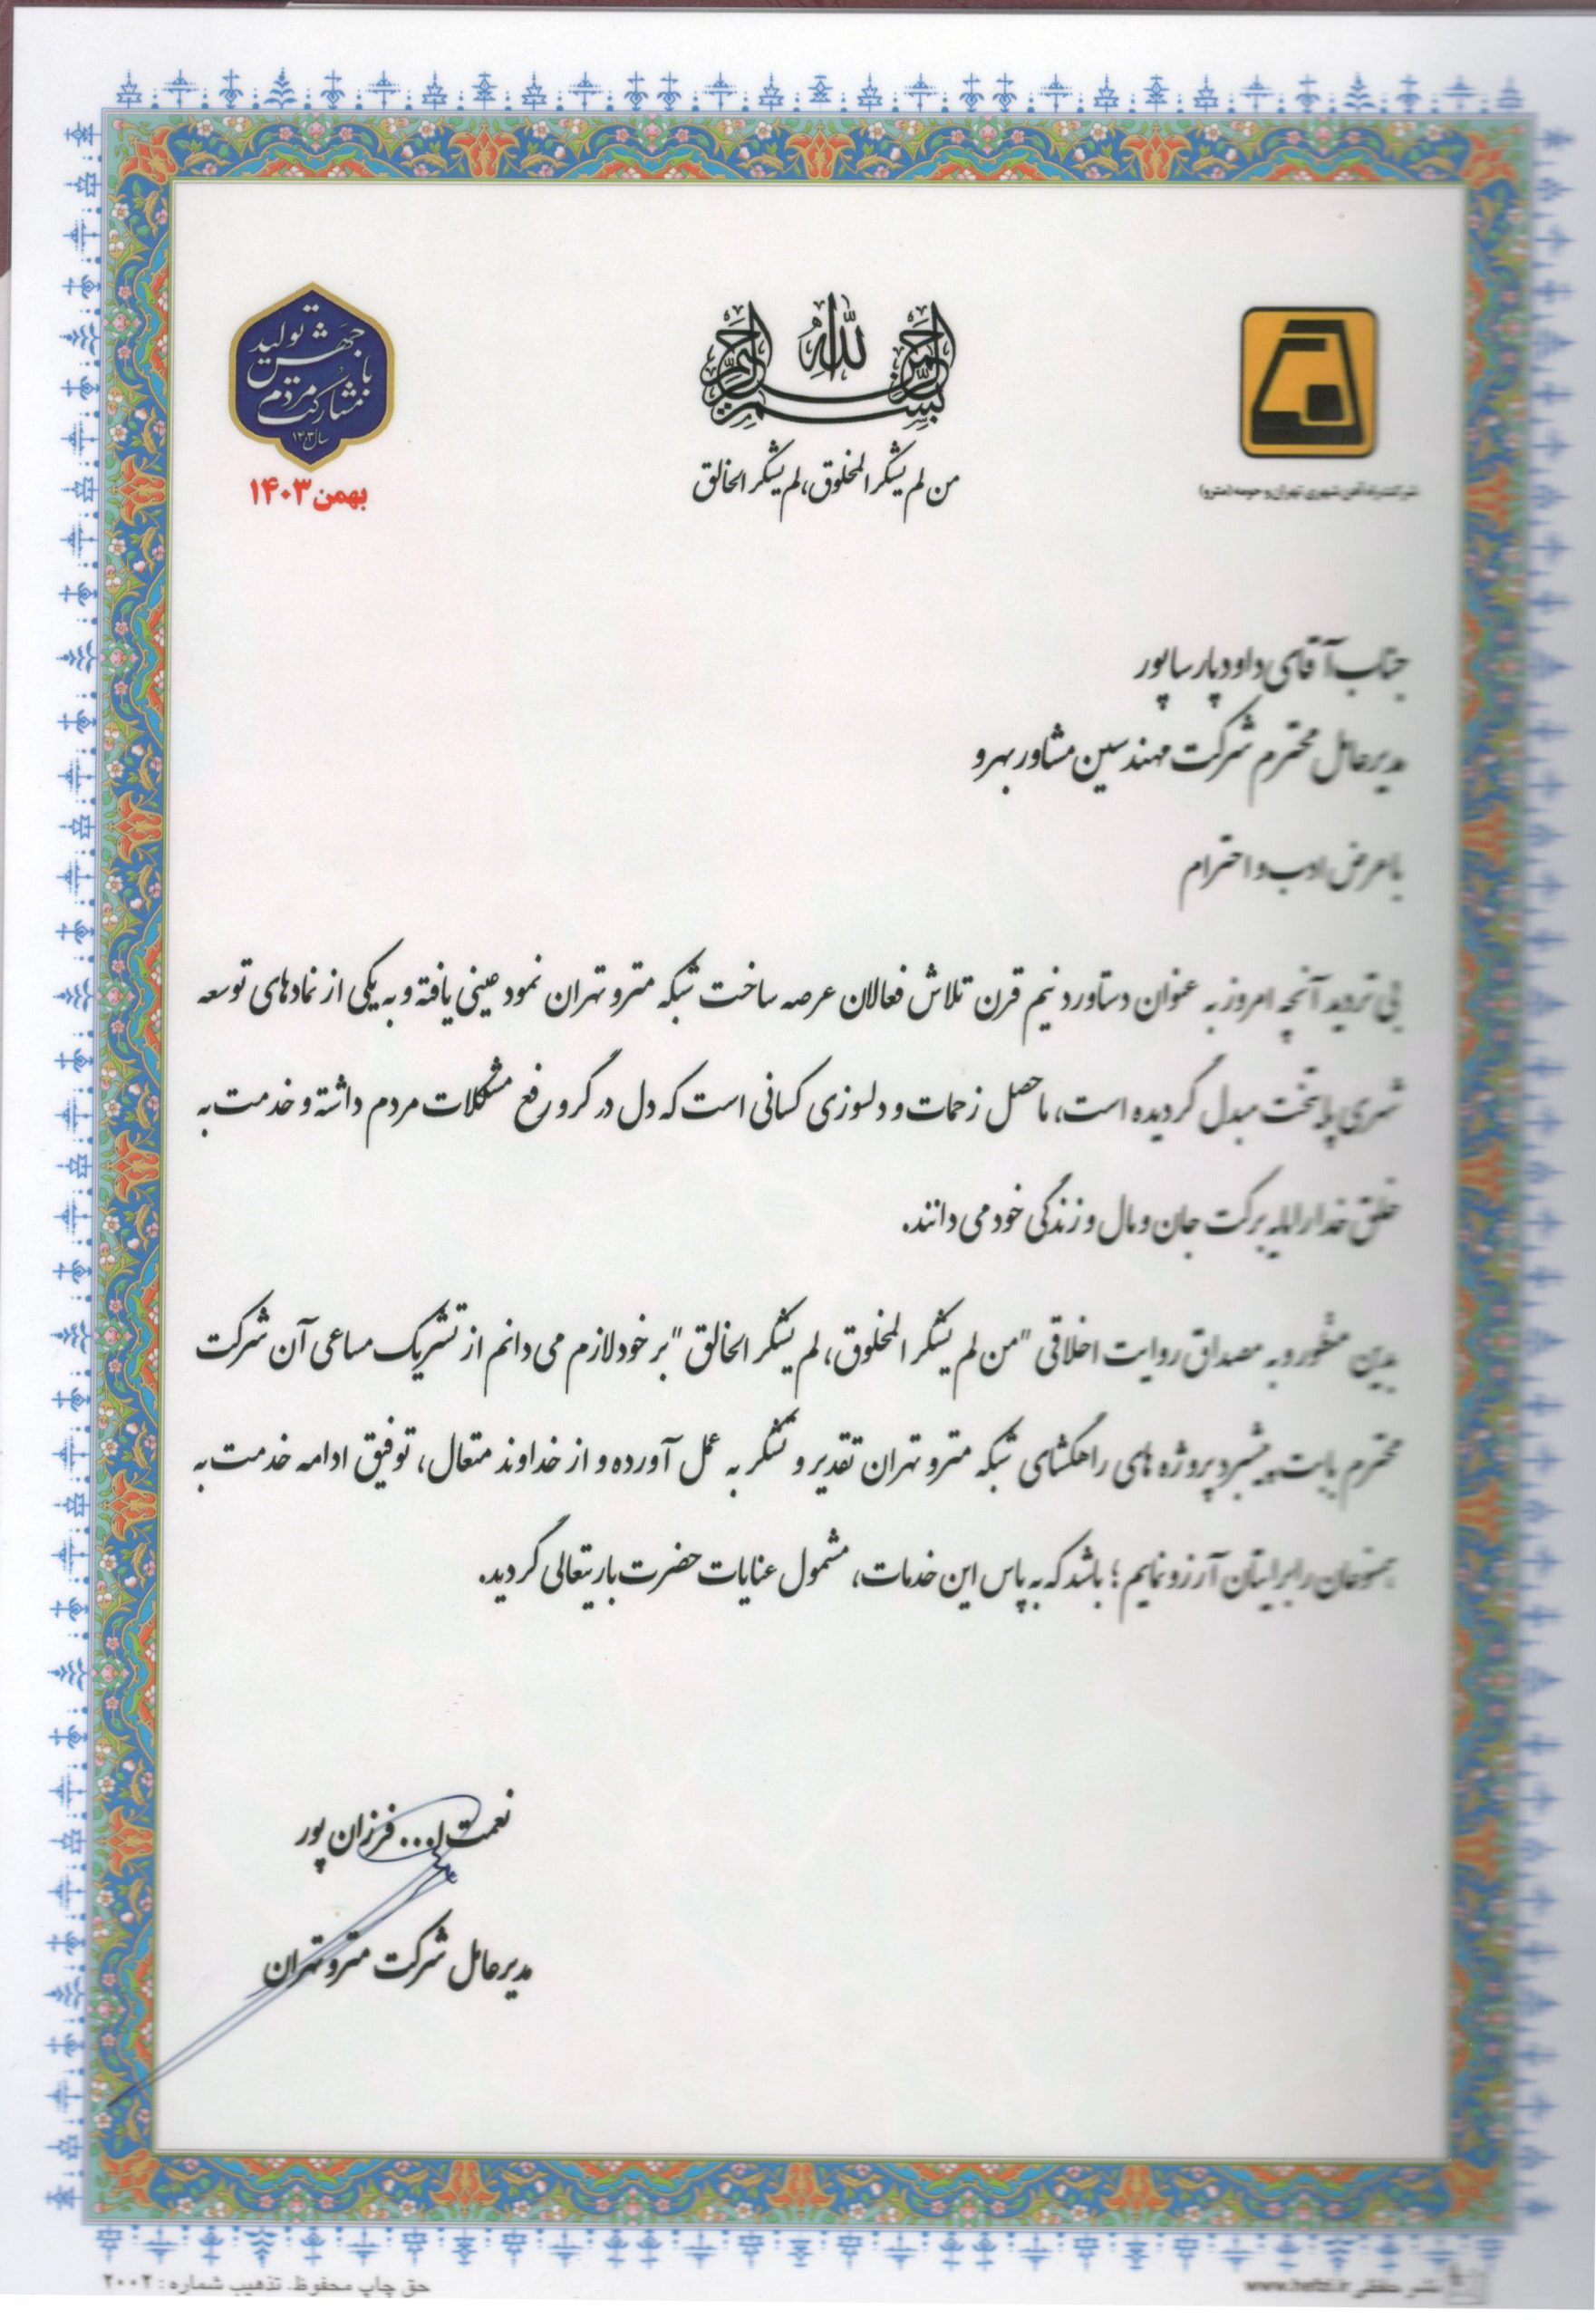 بسم الله الرحمن الرحیم
من لم یشکر المخلوق، لم یشکر الخالق
جهش تولید
با مشارکت مردم
سال ۱۴۰۳
بهمن ۱۴۰۳
شرکت راه آهن شهری تهران و حومه (مترو)
جناب آقای داود پارساپور
مدیرعامل محترم شرکت مهندسین مشاور بهرو
با عرض ادب و احترام
بی تردید آنچه امروز به عنوان دستاورد نیم قرن تلاش فعالان عرصه ساخت شبکه مترو تهران نمود عینی یافته و به یکی از نمادهای توسعه
شهری پایتخت مبدل گردیده است، ماحصل زحمات و دلسوزی کسانی است که دل در گرو رفع مشکلات مردم داشته و خدمت به
خلق خدا را مایه برکت جان و مال و زندگی خود می دانند.
بدین منظور و به مصداق روایت اخلاقی "من لم یشکر المخلوق، لم یشکر الخالق" بر خود لازم می دانم از تشریک مساعی آن شرکت
محترم بابت پیشبرد پروژه های راهگشای شبکه مترو تهران تقدیر و تشکر به عمل آورده و از خداوند متعال، توفیق ادامه خدمت به
همنوعان را برایتان آرزو نمایم؛ باشد که به پاس این خدمات، مشمول عنایات حضرت باریتعالی گردید.
نعمت ا... فرزان پور
مدیرعامل شرکت مترو تهران
حق چاپ محفوظ. تذهیب شماره: ۲۰۰۲
نشر حفظی www.hefzi.ir